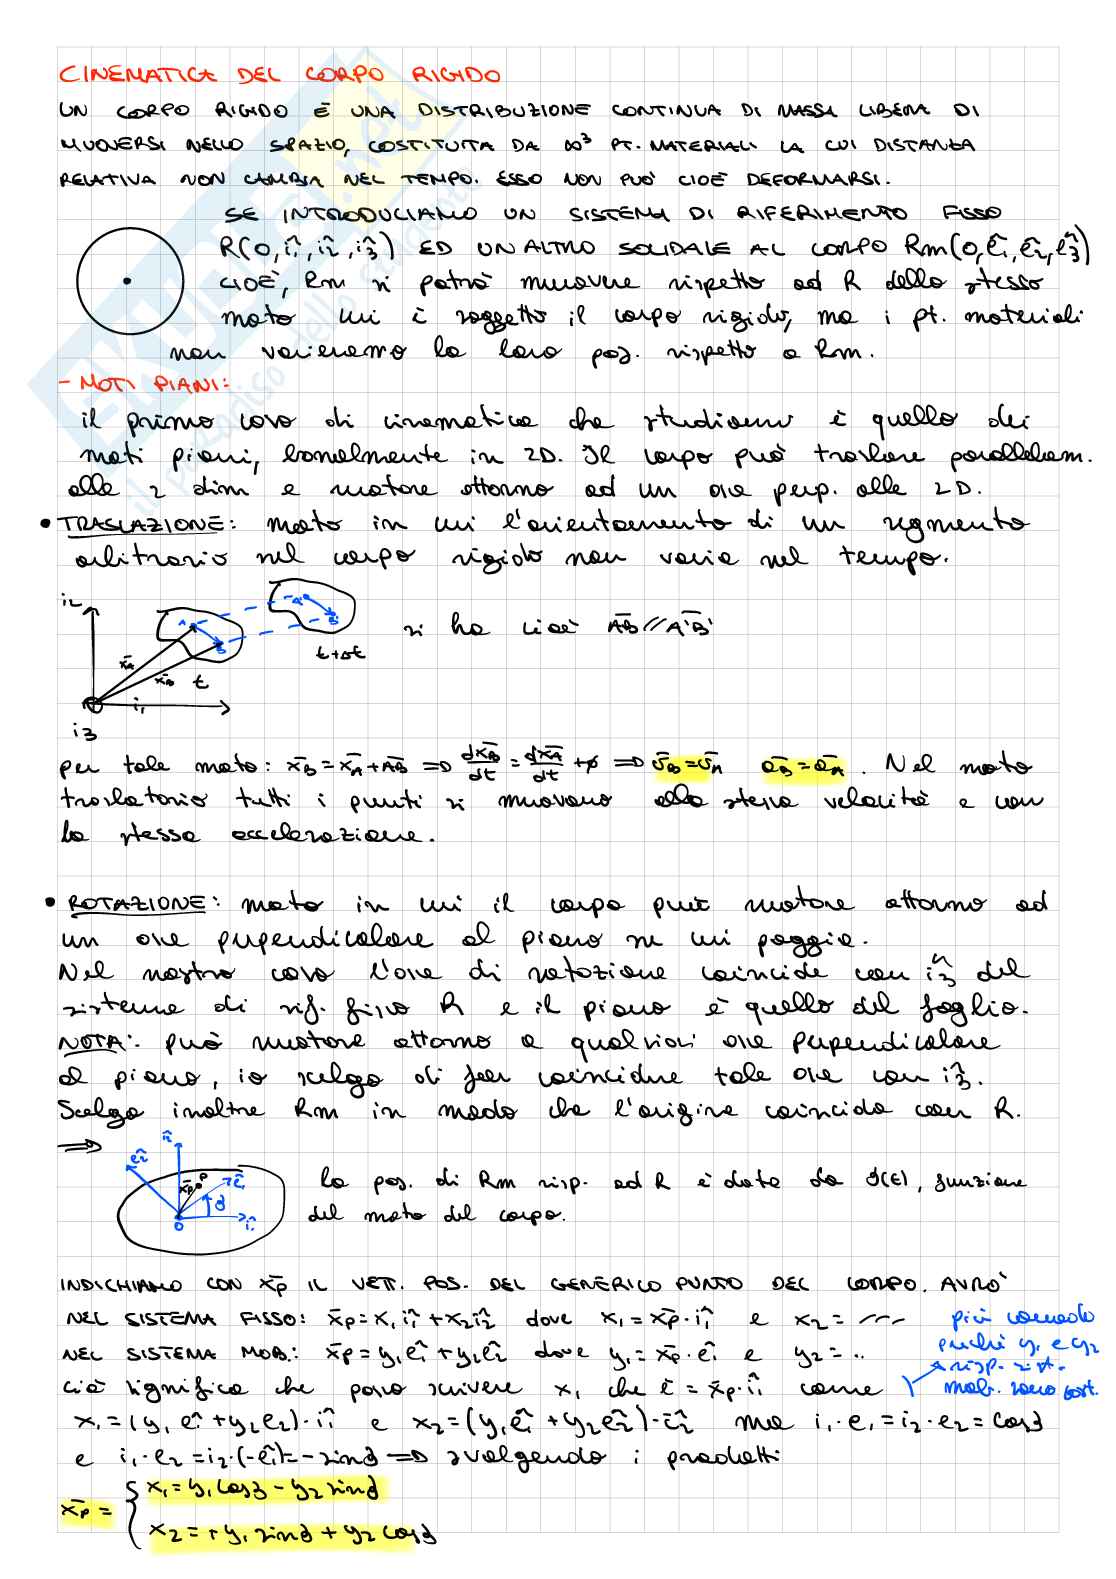 CINEMATICA DEL CORPO RIGIDO
UN CORPO RIGIDO È UNA DISTRIBUZIONE CONTINUA DI MASSA LIBERA DI
MUOVERSI NELLO SPAZIO, COSTITUITA DA ∞³ PT. MATERIALI LA CUI DISTANZA
RELATIVA NON CAMBIA NEL TEMPO. ESSO NON PUÒ CIOÈ DEFORMARSI.
SE INTRODUCIAMO UN SISTEMA DI RIFERIMENTO FISSO
R(O, î₁, î₂, î₃) ED UN ALTRO SOLIDALE AL CORPO Rm(O, ê₁, ê₂, ê₃)
CIOÈ, Rm si potrà muovere rispetto ad R dello stesso
moto cui è soggetto il corpo rigido, ma i pt. materiali
non varieranno la loro pos. rispetto a Rm.
- MOTI PIANI:
il primo caso di cinematica che studiamo è quello dei
moti piani, banalmente in 2D. Il corpo può traslare parallelam.
alle 2 dim e ruotare attorno ad un asse perp. alle 2D.
• TRASLAZIONE: moto in cui l'orientamento di un segmento
arbitrario nel corpo rigido non varia nel tempo.
i₂
A
B
A'
B'
x̄A
x̄B
t
t+Δt
i₁
i₃
si ha cioè ĀB // A'B'
per tale moto: x̄B = x̄A + ĀB ⇒ dx̄B/dt = dx̄A/dt + ∅ ⇒ v̄B = v̄A āB = āA. Nel moto
traslatorio tutti i punti si muovono alla stessa velocità e con
la stessa accelerazione.
• ROTAZIONE: moto in cui il corpo può ruotare attorno ad
un asse perpendicolare al piano su cui poggia.
Nel nostro caso l'asse di rotazione coincide con î₃ del
sistema di rif. fisso R e il piano è quello del foglio.
NOTA: può ruotare attorno a qualsiasi asse perpendicolare
al piano, io scelgo di far coincidere tale asse con î₃.
Scelgo inoltre Rm in modo che l'origine coincida con R.
⇒
î₂
ê₂
x̄p
P
ê₁
ϑ
O
î₁
la pos. di Rm risp. ad R è data da ϑ(t), funzione
del moto del corpo.
INDICHIAMO CON x̄p IL VETT. POS. DEL GENERICO PUNTO DEL CORPO. AVRÒ
NEL SISTEMA FISSO: x̄p = x₁ î₁ + x₂ î₂ dove x₁ = x̄p · î₁ e x₂ = ---
NEL SISTEMA MOB.: x̄p = y₁ ê₁ + y₂ ê₂ dove y₁ = x̄p · ê₁ e y₂ = ..
più comodo
perché y₁ e y₂
risp. sist.
mob. sono cost.
ciò significa che posso scrivere x₁ che è = x̄p · î₁ come
x₁ = (y₁ ê₁ + y₂ e₂) · î₁ e x₂ = (y₁ ê₁ + y₂ ê₂) · î₂ ma i₁ · e₁ = i₂ · e₂ = cosϑ
e i₁ · e₂ = i₂ · (-ê₁) = - sinϑ ⇒ svolgendo i prodotti
x̄p = { x₁ = y₁ cosϑ - y₂ sinϑ
x₂ = + y₁ sinϑ + y₂ cosϑ